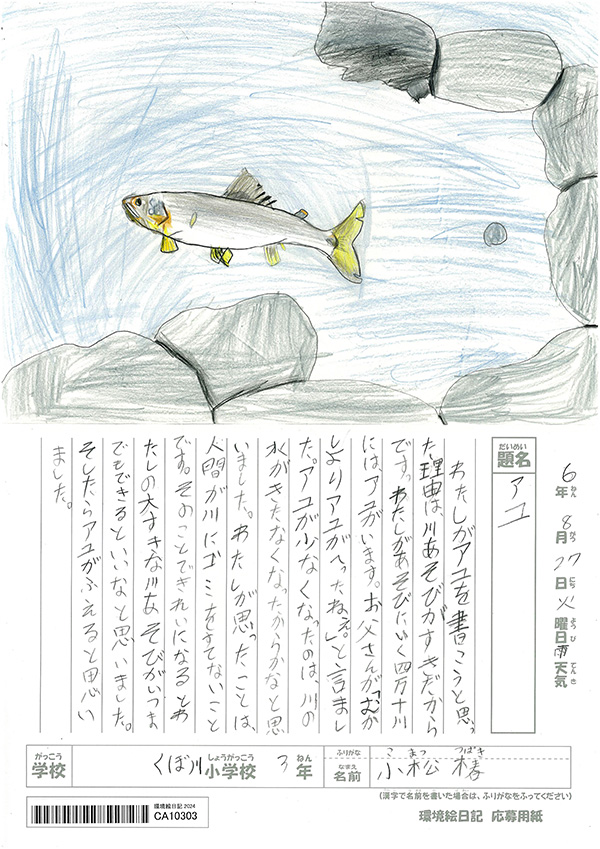 だいめい
題名
アユ
6年 8月 27日 火曜日 雨天気
ねん がつ にち よう び てん き
わたしがアユを書こうと思っ
た理由は、川あそびがすきだから
です。わたしがあそびにいく四万十川
には、アユがいます。お父さんが「むか
しよりアユがへったねぇ。」と言まし
た。アユが少なくなったのは、川の
水がきたなくなったからかなと思
いました。わたしが思ったことは、
人間が川にゴミをすてないこと
です。そのことできれいになるとわ
たしの大すきな川あそびがいつま
でもできるといいなと思いました。
そしたらアユがふえると思い
ました。
がっこう
学校
くぼ川小学校 3年
しょうがっこう ねん
ふりがな
なまえ
名前
こ まつ つばき
小松 椿
(漢字で名前を書いた場合は、ふりがなをふってください)
環境絵日記 2024
CA10303
環境絵日記 応募用紙